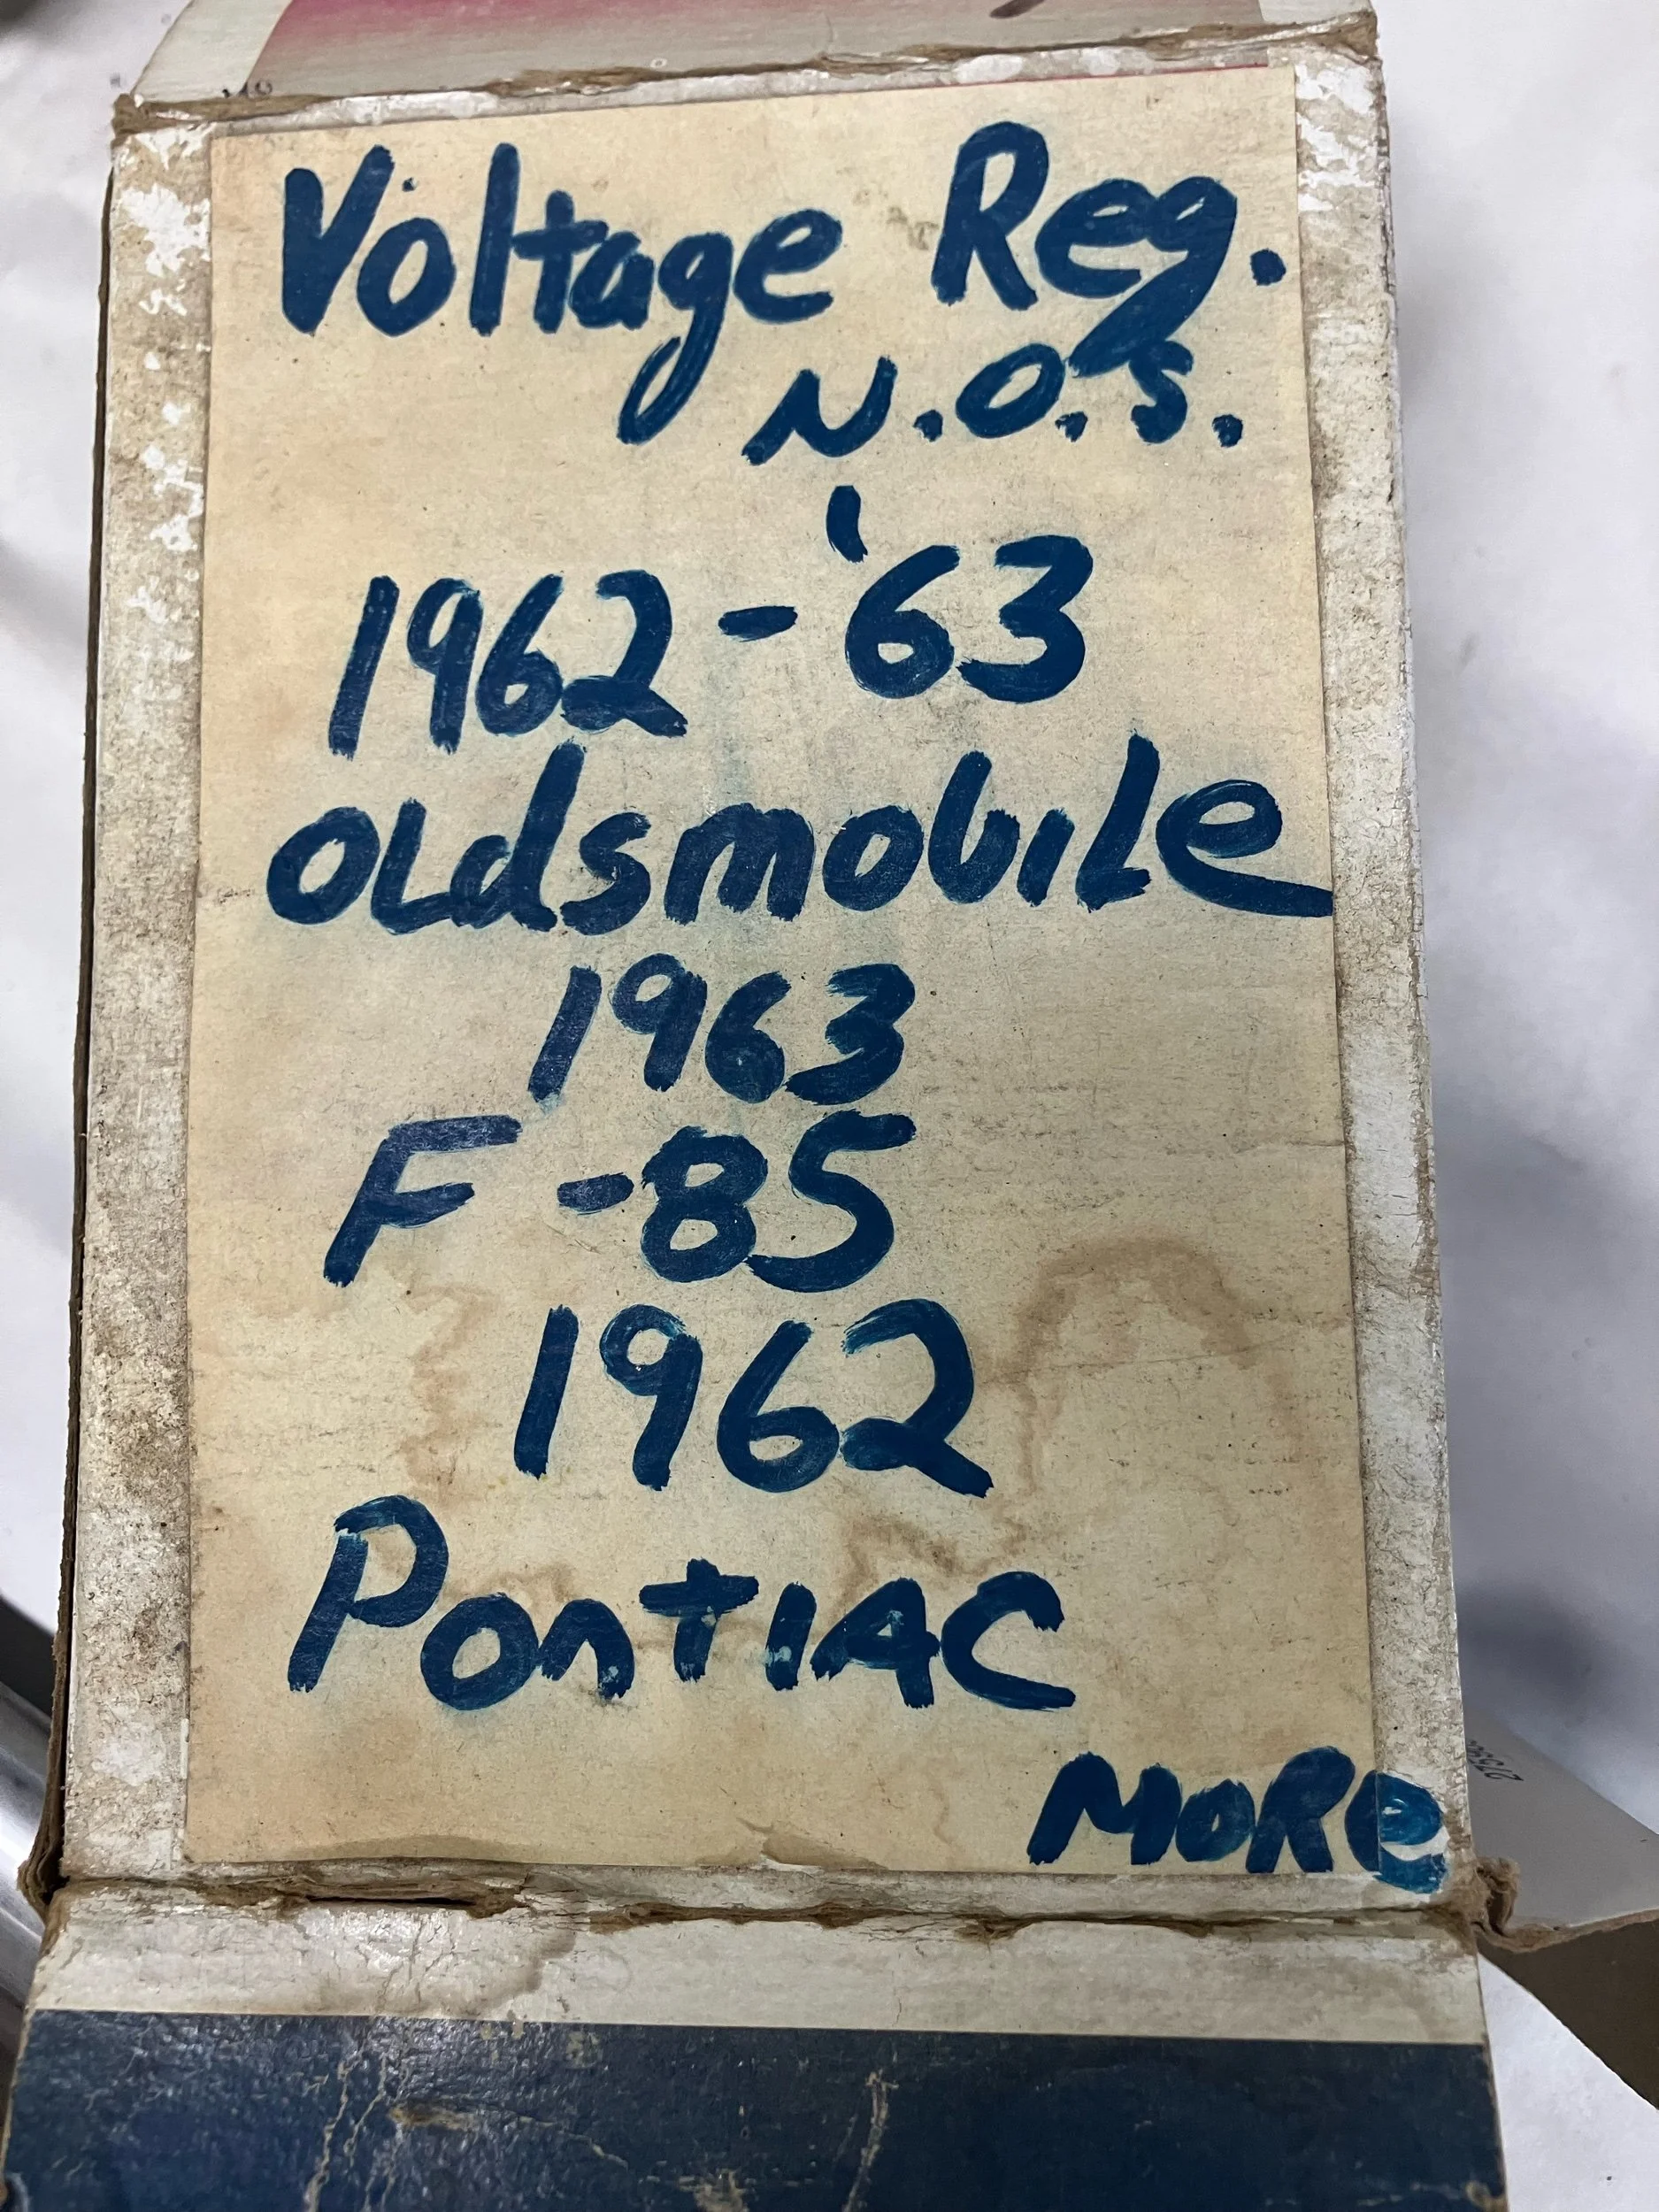 Voltage Reg.
N.O.S.
1962-'63
Oldsmobile
1963
F-85
1962
Pontiac
MORe